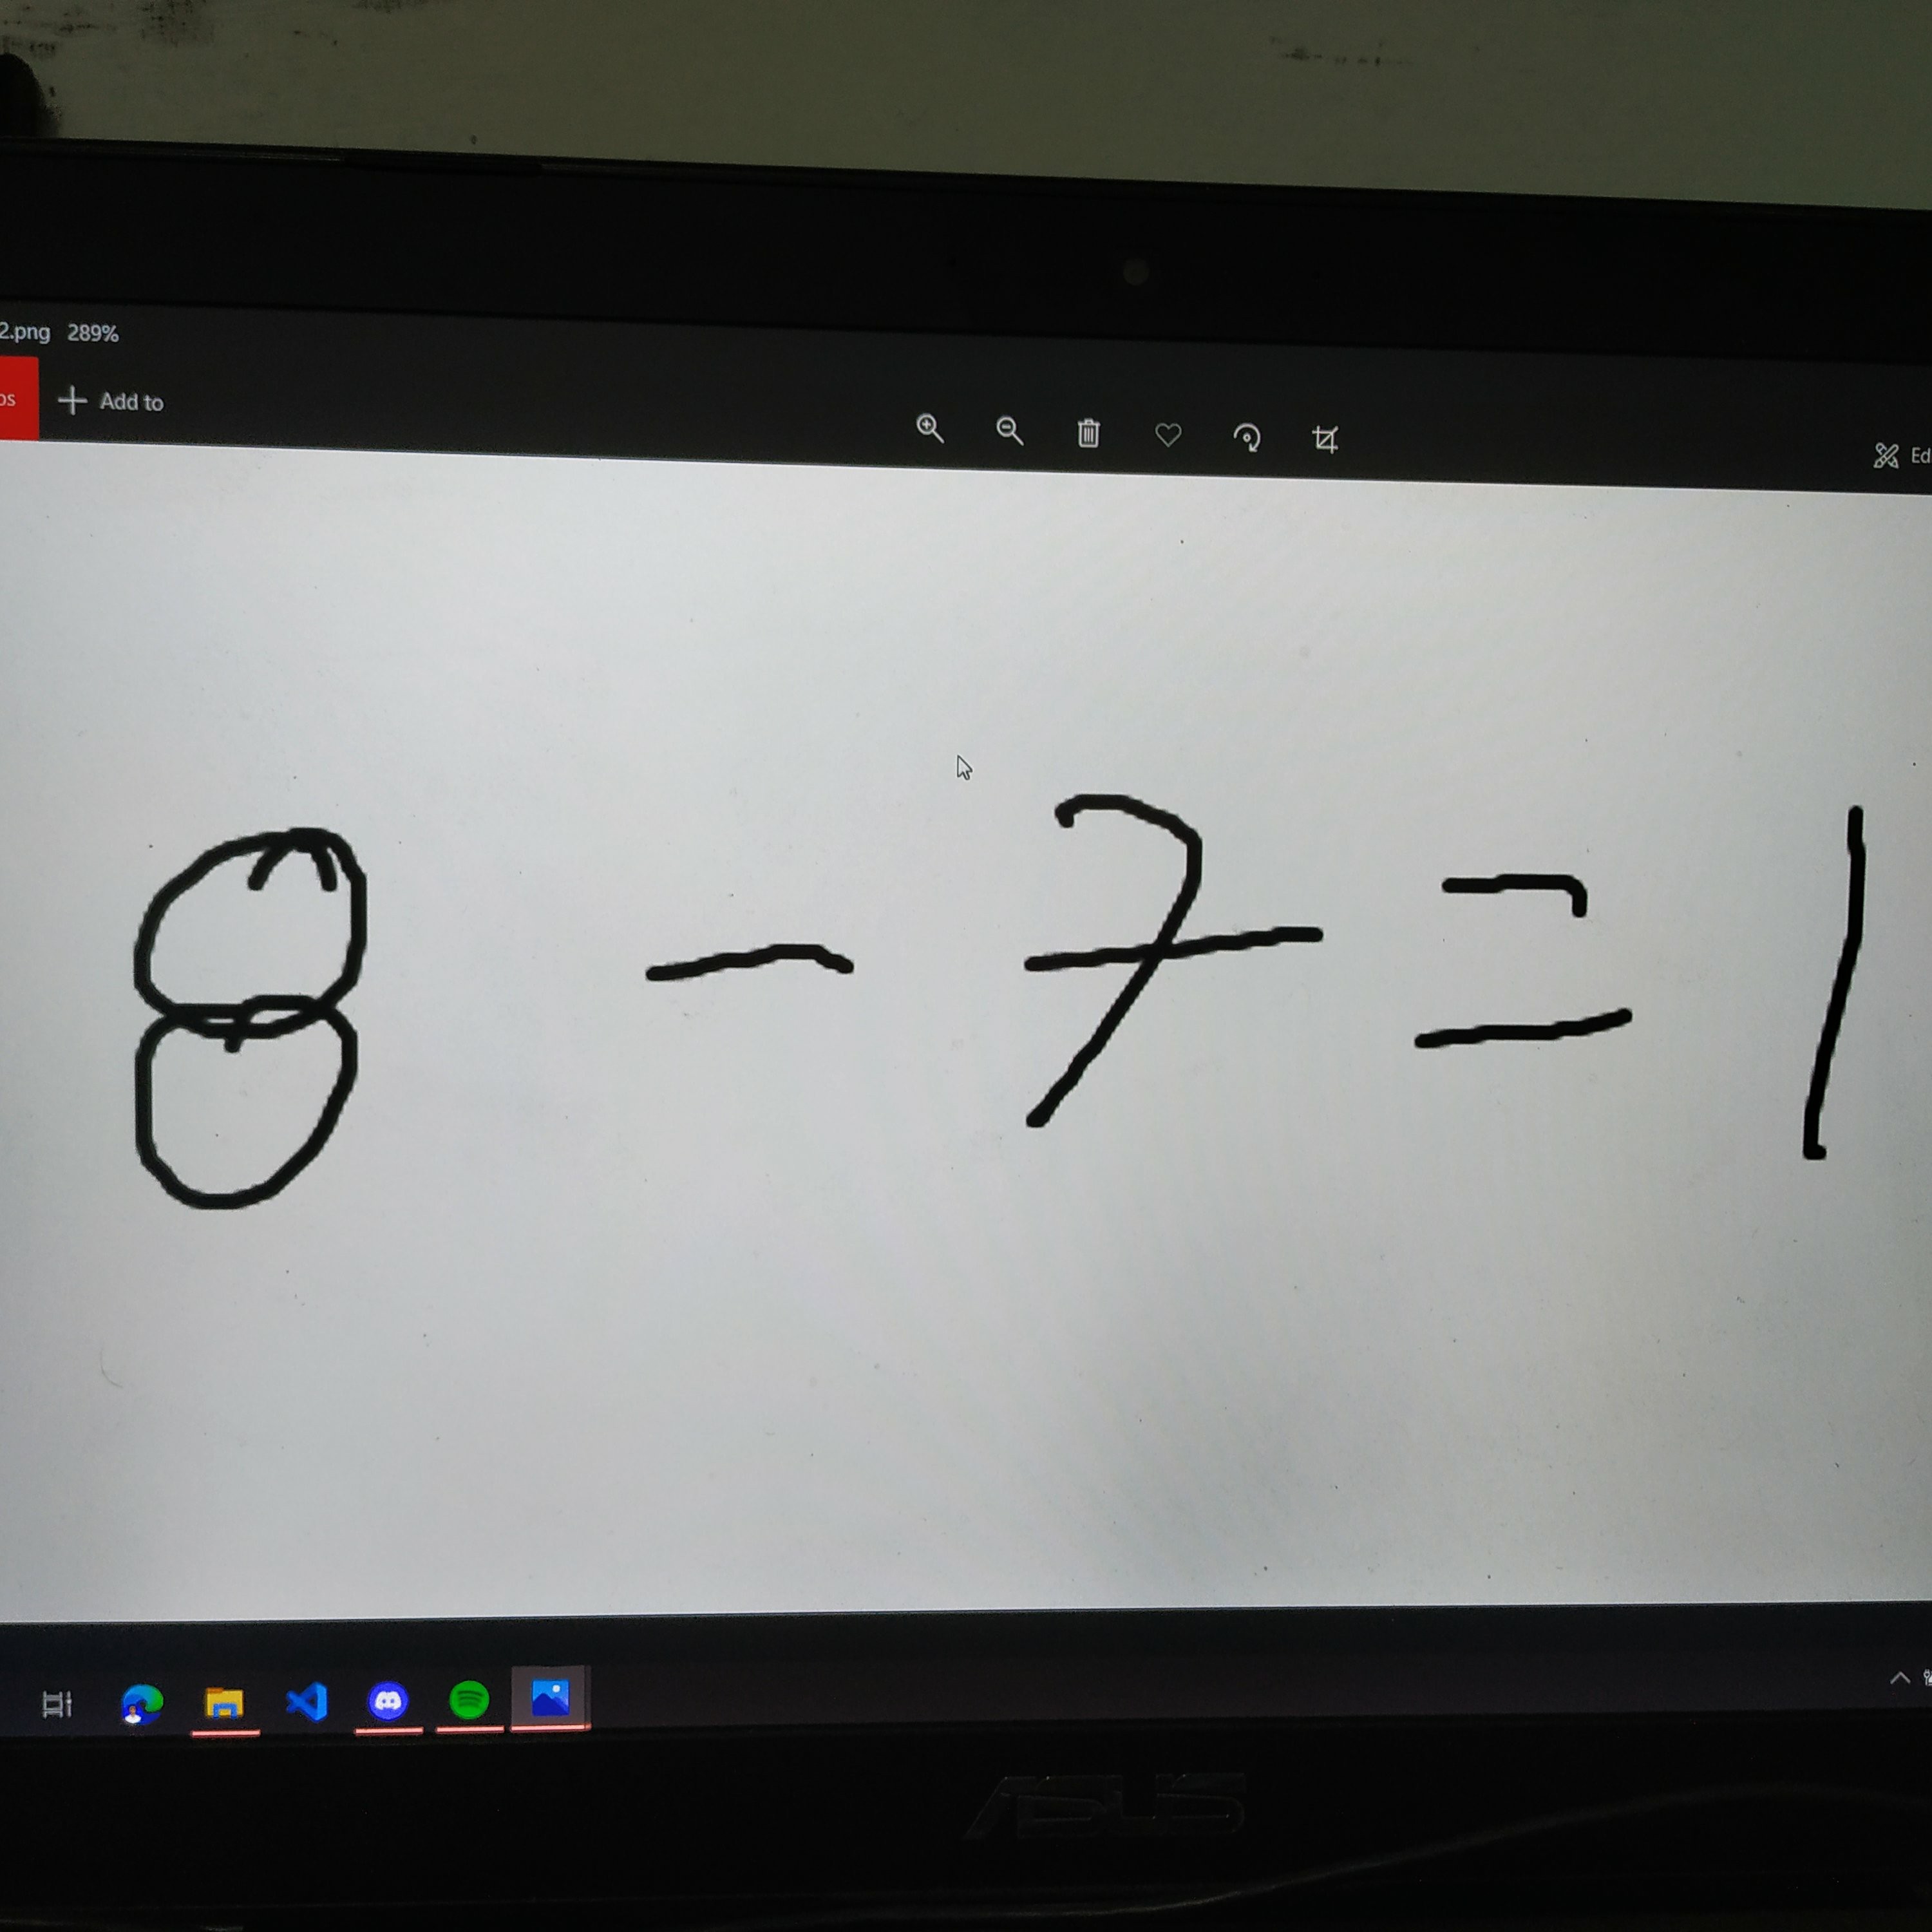 2.png 289%
os Add to
Ed
8 - 7 = 1
ASUS